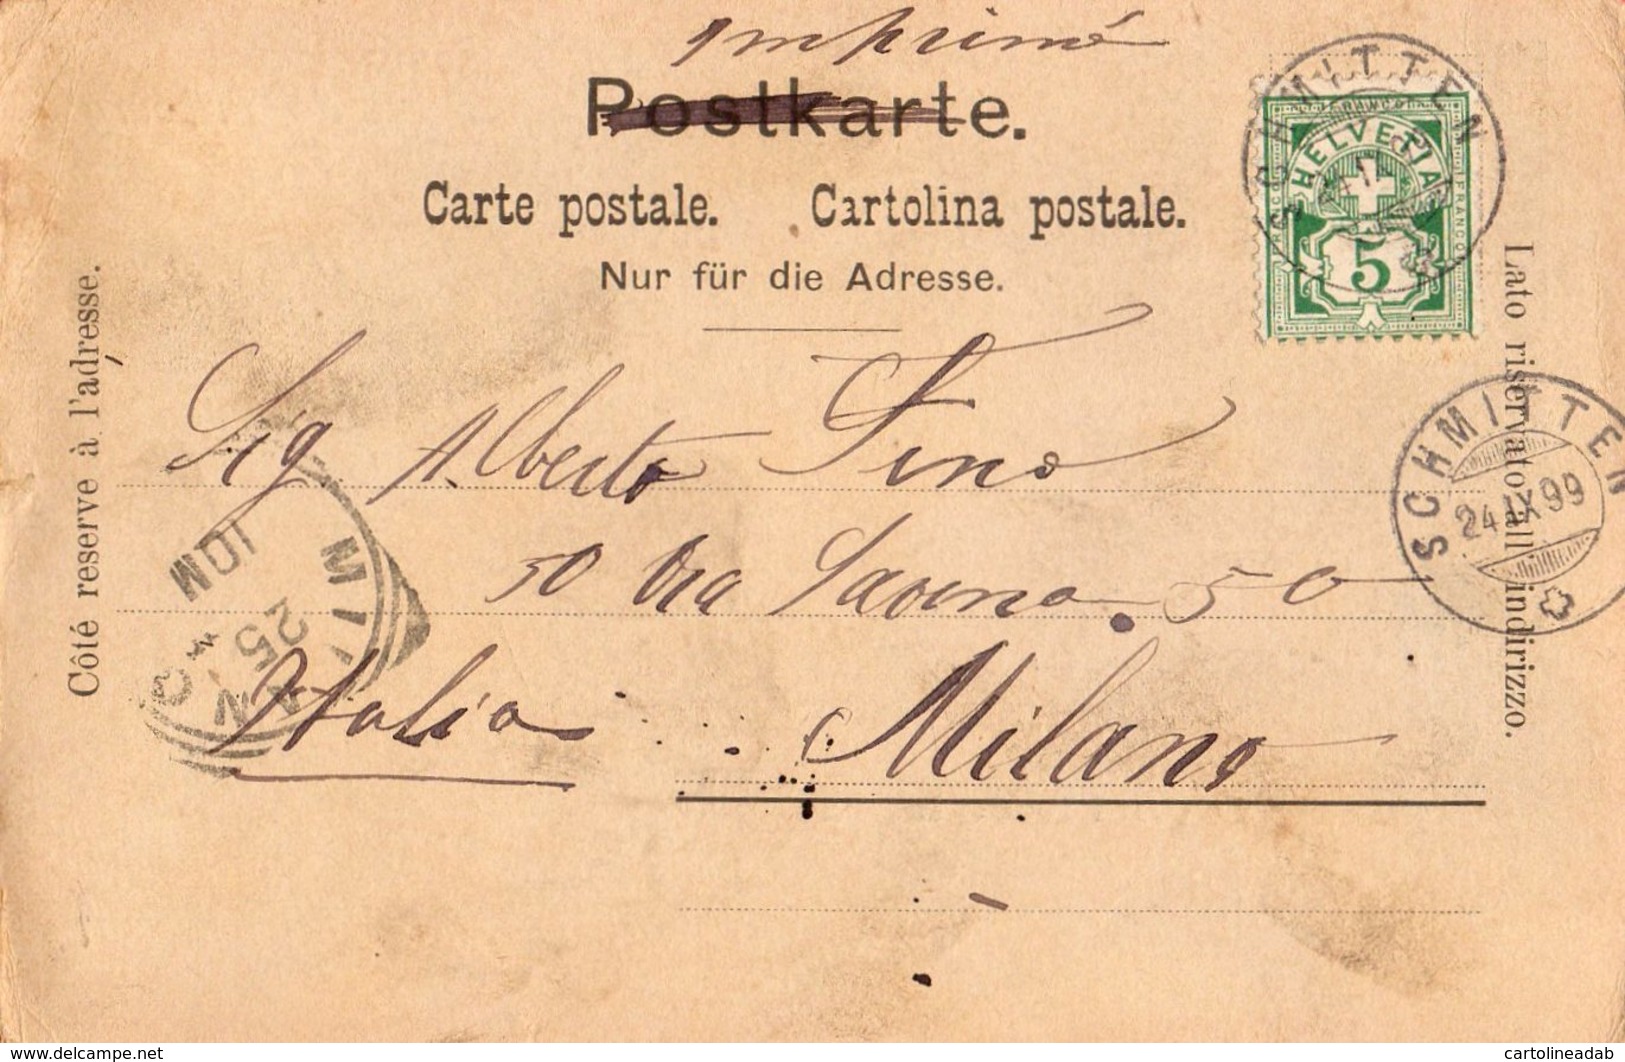 Imprimé
Postkarte.
Carte postale. Cartolina postale.
Nur für die Adresse.
Côté reserve à l'adresse.
Lato riservato all'indirizzo.
FRANCO
HELVETIA
5
FRANCO
SCHMITTEN
SCHMITTEN
24.IX.99
Sig Alberto Fino
50 Via Savona 50
Italia Milano
MILANO
25
10M
www.delcampe.net
cartolineadab